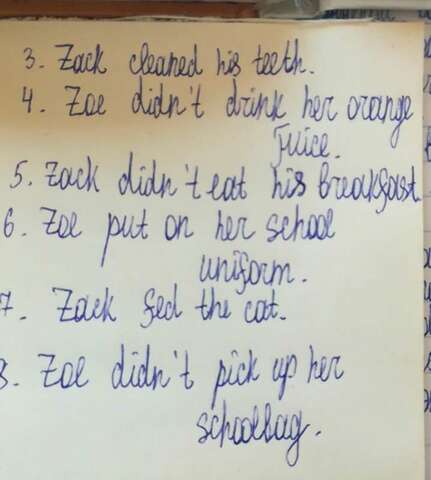 3. Zack cleaned his teeth.
4. Zoe didn't drink her orange
juice.
5. Zack didn't eat his breakfast
6. Zoe put on her school
uniform.
7. Zack fed the cat.
8. Zoe didn't pick up her
schoolbag.